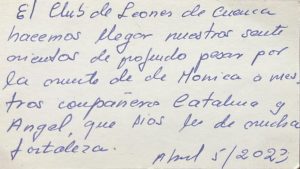 El Club de Leones de Cuenca
hacemos llegar nuestros senti
mientos de profundo pesar por
la muerte de de Monica a nues
tros compañeros Catalina y
Angel, que Dios les de mucha
fortaleza.
Abril 5/2023